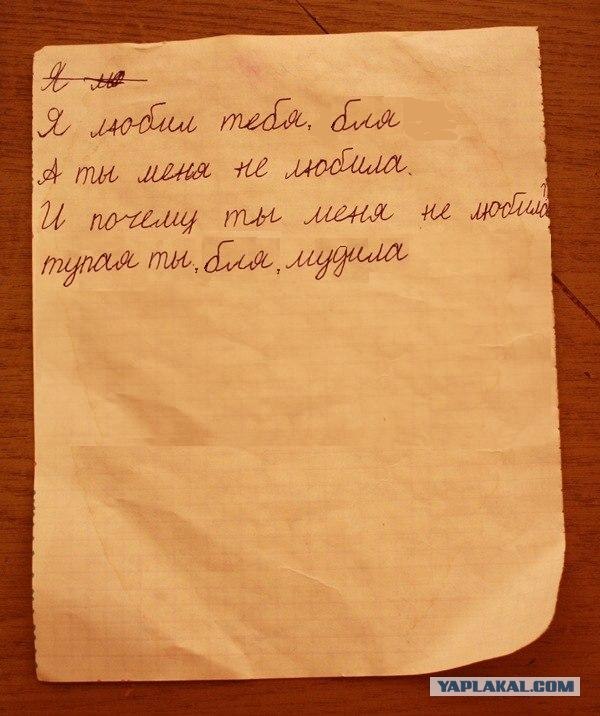 Я лю
Я любил тебя, бля
А ты меня не любила.
И почему ты меня не любила?
тупая ты, бля, мудила
YAPLAKAL.COM